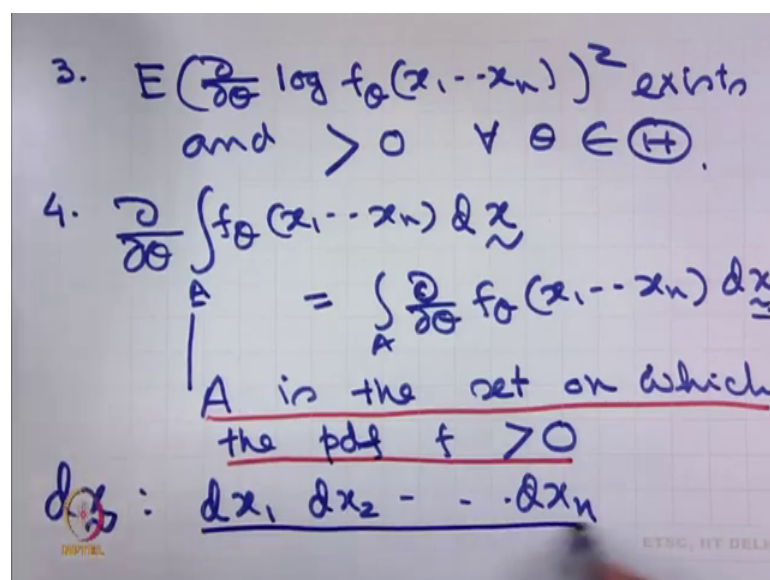 3. E(∂/∂θ log f_θ(x₁--xₙ))² exists
and > 0 ∀ θ ∈ Ⓗ.
4. ∂/∂θ ∫_A f_θ(x₁--xₙ) dx̰
= ∫_A ∂/∂θ f_θ(x₁--xₙ) dx̰
A is the set on which
the pdf f > 0
dx̰ : dx₁ dx₂ - - . dxₙ
NPTEL
ETSC, IIT DELH